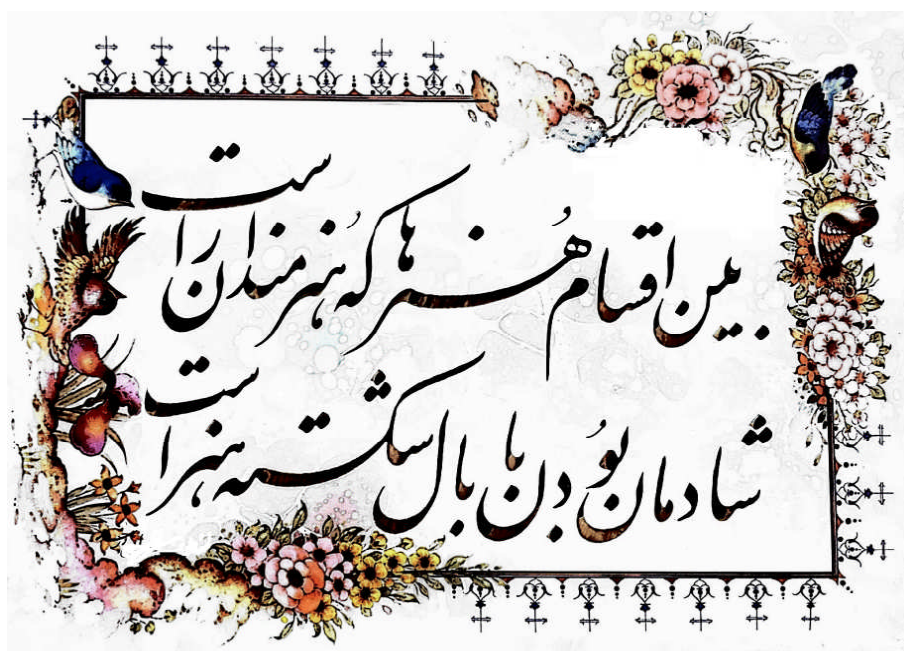 بین اقسام هُنرها که هُنرمندان راست
شادمان بُودن با بال شکسته هنر است